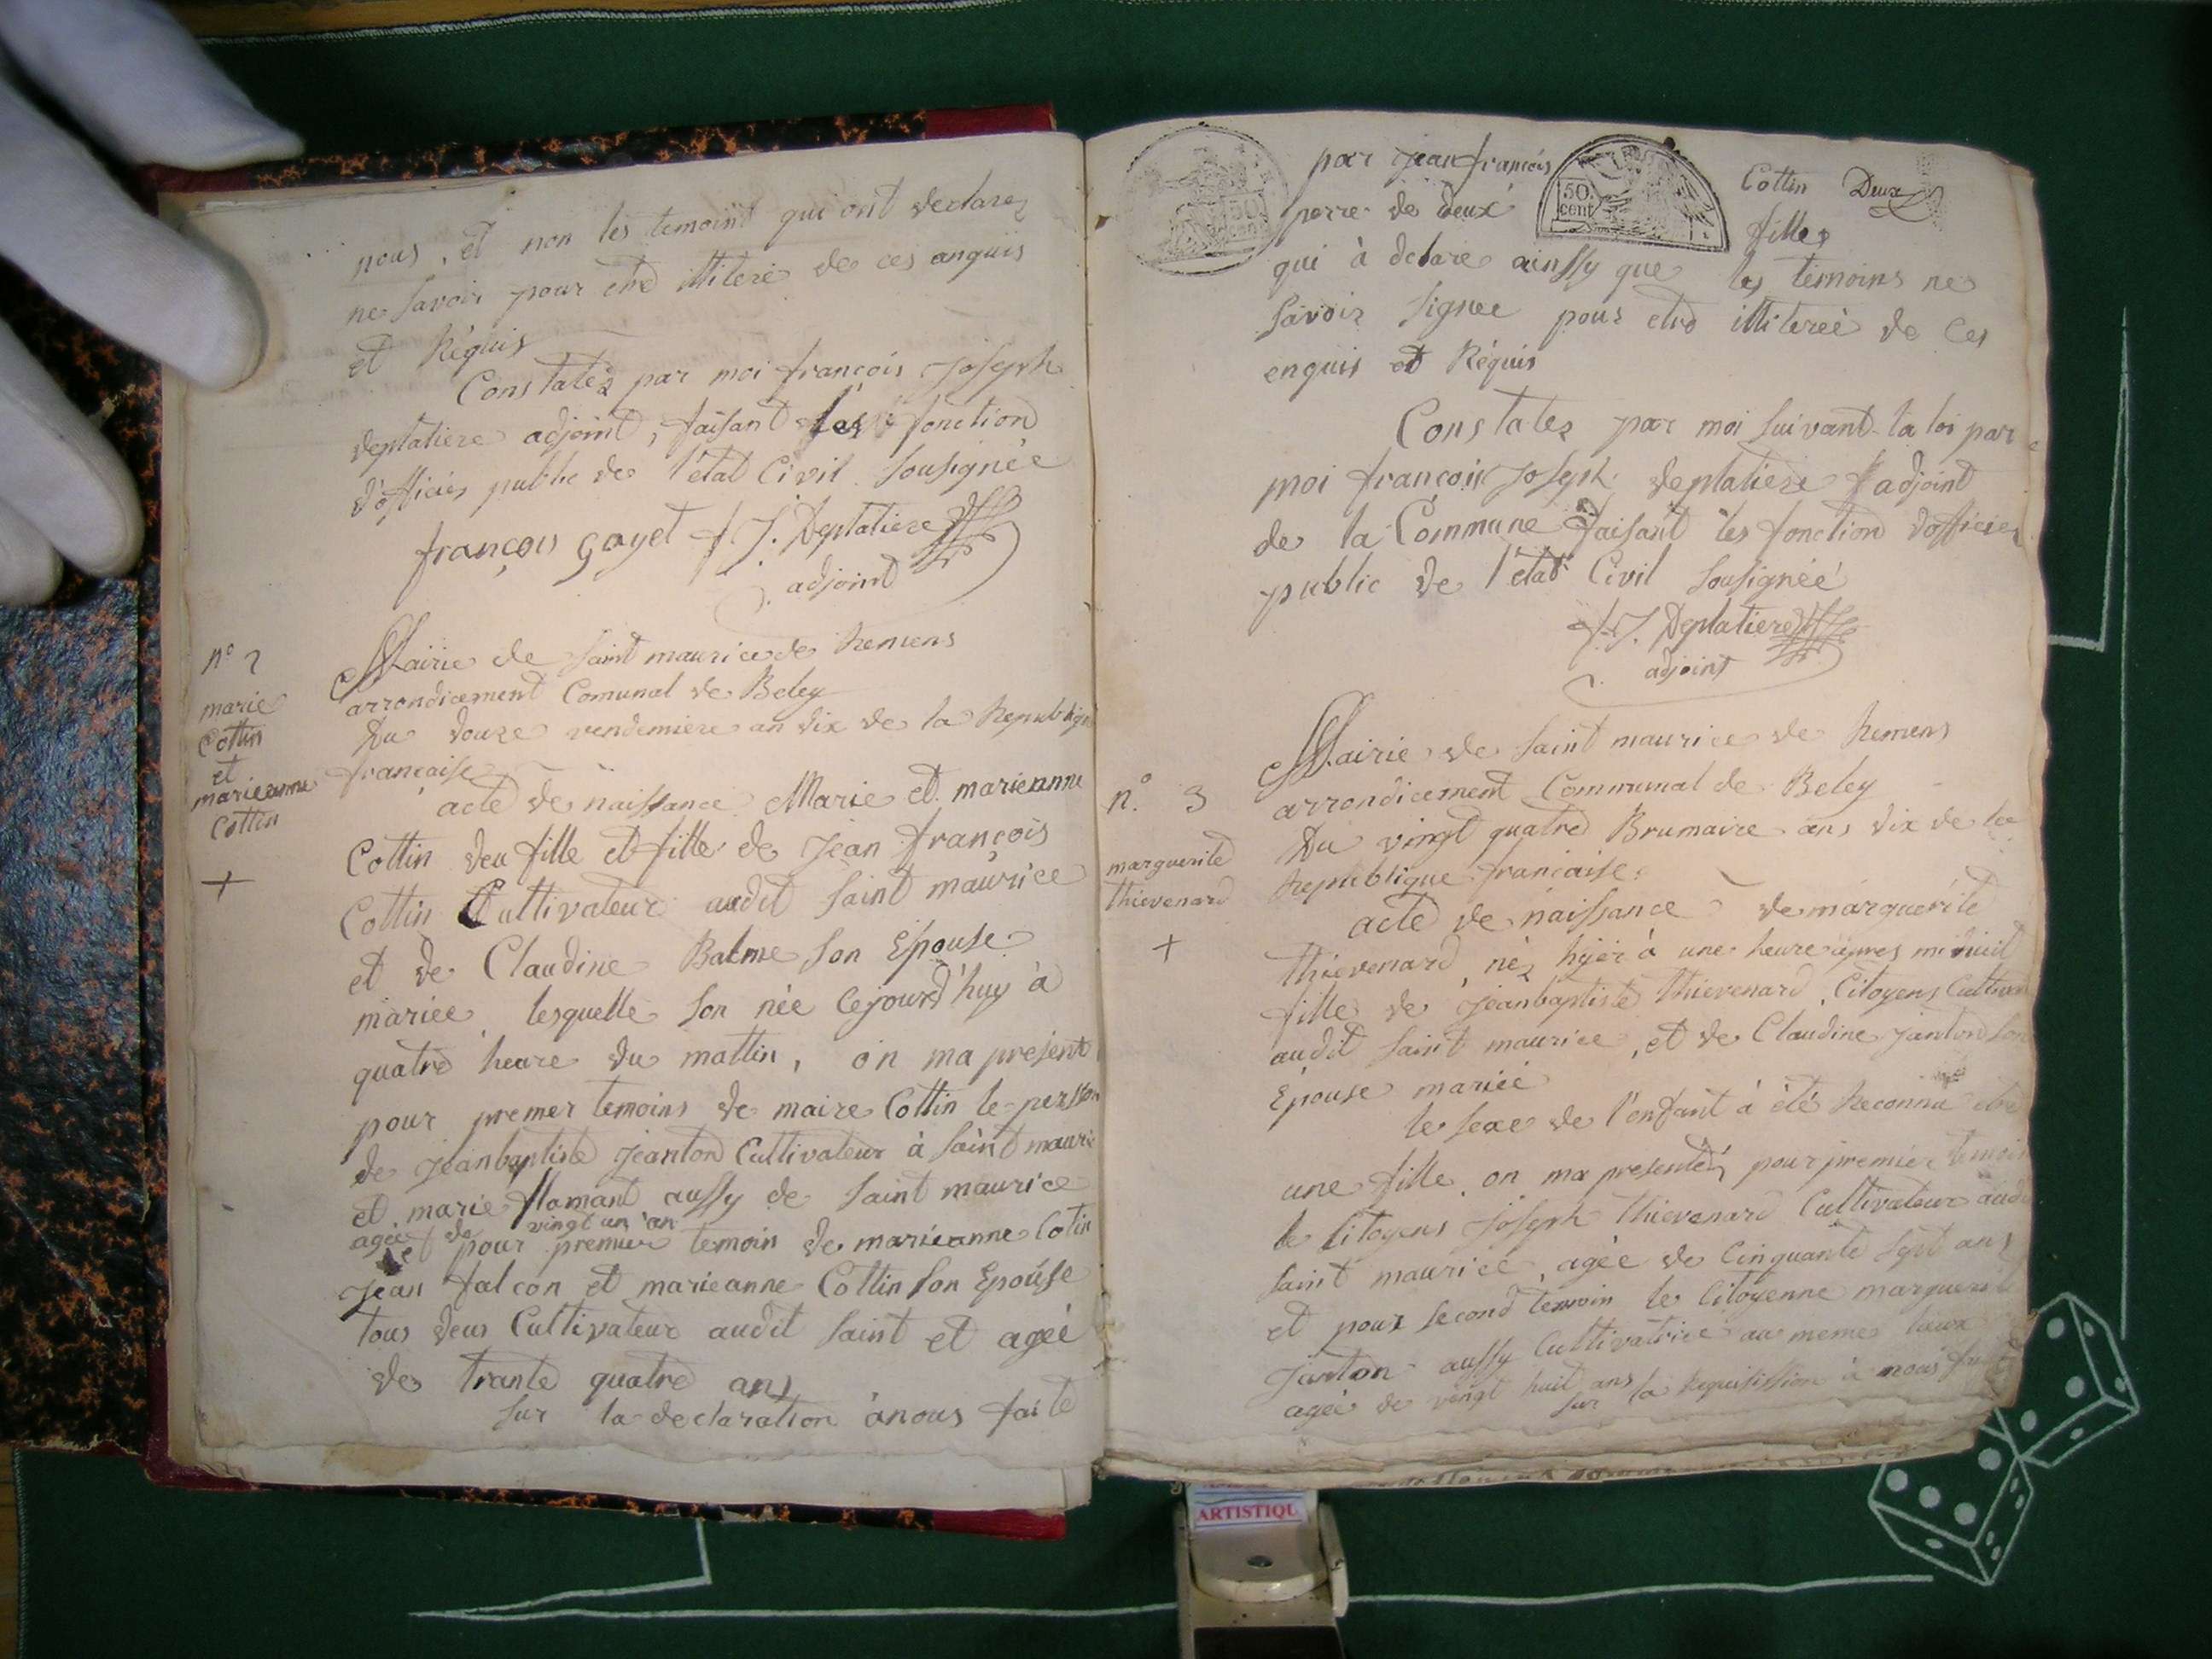 nous, et non les temoint qui ont declarez
ne savoir pour etre illiteré de ces anquis
et Réquis
Constatéz par moi françois joseph
deplatiere adjoint, faisant les fonction
d'officier public de l'état Civil sousignéé
françois gayet f J. Deplatiere
adjoint
n° 2
marie
Cottin
et
marieanne
Cottin
+
Mairie de saint maurice de Remens
arrondicement Comunal de Beley
Du douze vendemiere an dix de la Republique
française
acte de naissance Marie et marieanne
Cottin deu fille et fille de Jean françois
Cottin Cultivateur audit saint maurice
et de Claudine Balme son Epouse
mariée lesquelle son née cejourd'huy à
quatre heure du mattin, on ma présent
pour premer temoins de maire Cottin le person
de jeanbaptiste jeanton Cultivateur à saint mauric
et marie flamant aussy de saint maurice
ageé de vingt un an
et pour premier temoin de marieanne Cotin
Jean falcon et marieanne Cottin son Epouse
tous deus Cultivateur audit saint et ageé
de trante quatre ans
sur la declaration ànous faite
par jean françois Cottin Deux
perre de deux filles
50.
cent
qui à declare ainssy que les temoins ne
savoir signee pour etre illitereé de Ces
enquis et Réquis
Constatez par moi suivant la loi par
moi françois Joseph deplatiere adjoint
de la Commune faisant les fonction d'officier
public de l'état Civil sousignéé
f. J. Deplatiere
adjoint
n.° 3
marguerite
thievenard
+
Mairie de saint maurice de Remens
arrondicement Communal de Beley
Du vingt quatre Brumaire ans dix de la
Republique françaises
acte de naissance de marguérite
thievenard néz hyer à une heure apres miniuit
fille de Jeanbaptiste thievenard Citoyens Cultivat
audit saint maurice, et de Claudine janton son
Epouse mariéé
le sexe de l'enfant à étés Reconnu etre
une fille on ma presentéz pour premier temoin
le Citoyens joseph thievenard Cultivateur audi
saint maurice, ageé de Cinquante sept ans
et pour second temoin le Citoyenne marguerite
janton aussy Cultivatrice au meme lieux
ageé de vingt huit ans
sur la Requisission à nous fait
ARTISTIQU